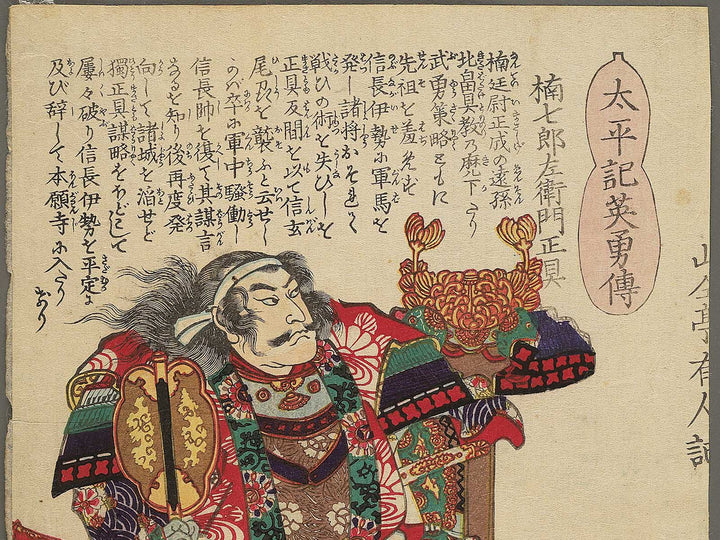 太平記英勇傳
山々亭有人記
楠七郎左衛門正具
楠廷尉正成の遠孫
北畠具教乃麾下たり
武勇策略ともに
先祖を羞しめず
信長伊勢に軍馬を
発し諸将おそれて
戦ひの術を失ひしを
正具反間を以て信玄
尾州を襲ふと云せし
かバ卒に軍中騒動し
信長帥を復て其謀言
なるを知り後再度発
向して諸城を陥せど
獨正具謀略をほどこして
屡々破り信長伊勢を平定に
及び辞して本願寺に入たり